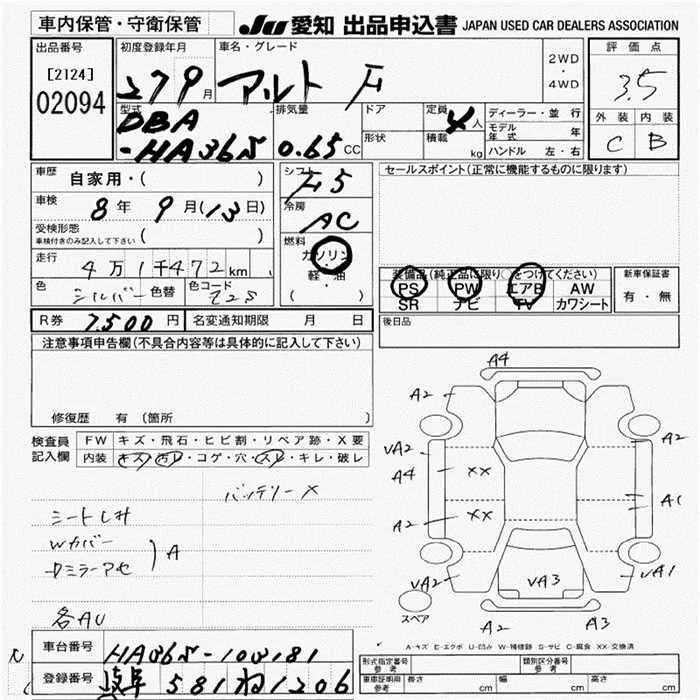 車内保管・守衛保管
JU 愛知 出品申込書 JAPAN USED CAR DEALERS ASSOCIATION
出品番号
[2124]
02094
初度登録年月
27 9 月
車名・グレード
アルト F
2WD
・
4WD
評価点
3.5
外装 内装
C B
型式
DBA
-HA36S
排気量
0.65 CC
ドア
形状
定員 4 人
積載 kg
ディーラー・並行
モデル年式 年
ハンドル 左・右
車歴 自家用・( )
車検 8 年 9 月 (13 日)
受検形態
車検付きのみ記入して下さい ( )
走行 4 万 1 千 472 km
色 シルバー 色替 色コード Z2S
シフト F5
冷房 AC
燃料
ガソリン
・
軽・油
( )
セールスポイント(正常に機能するものに限ります)
装備品(純正品に限り○をつけてください)
PS PW エアB AW
SR ナビ TV カワシート
新車保証書
有・無
R券 7,500 円 名変通知期限 月 日
後日品
注意事項申告欄(不具合内容等は具体的に記入して下さい)
修復歴 有 (箇所
検査員記入欄
FW キズ・飛石・ヒビ割・リペア跡・X要
内装 キズ・汚レ・コゲ・穴・スレ・キレ・破レ
バッテリーX
シートしみ
Wカバー
Dミラーアセ
A
各AU
A4
A2
A2
UA2
A4
XX
A2
XX
A1
UA2
UA1
UA3
A2
A3
スペア
A-キズ E-エクボ U-凹み W-補修跡 S-サビ C-腐食 XX-交換済
車台番号 HA36S-103181
登録番号 581 ね 1206
形式指定番号
参考
類別区分番号
参考
車庫証明用
参考
長さ cm 幅 cm 高さ cm